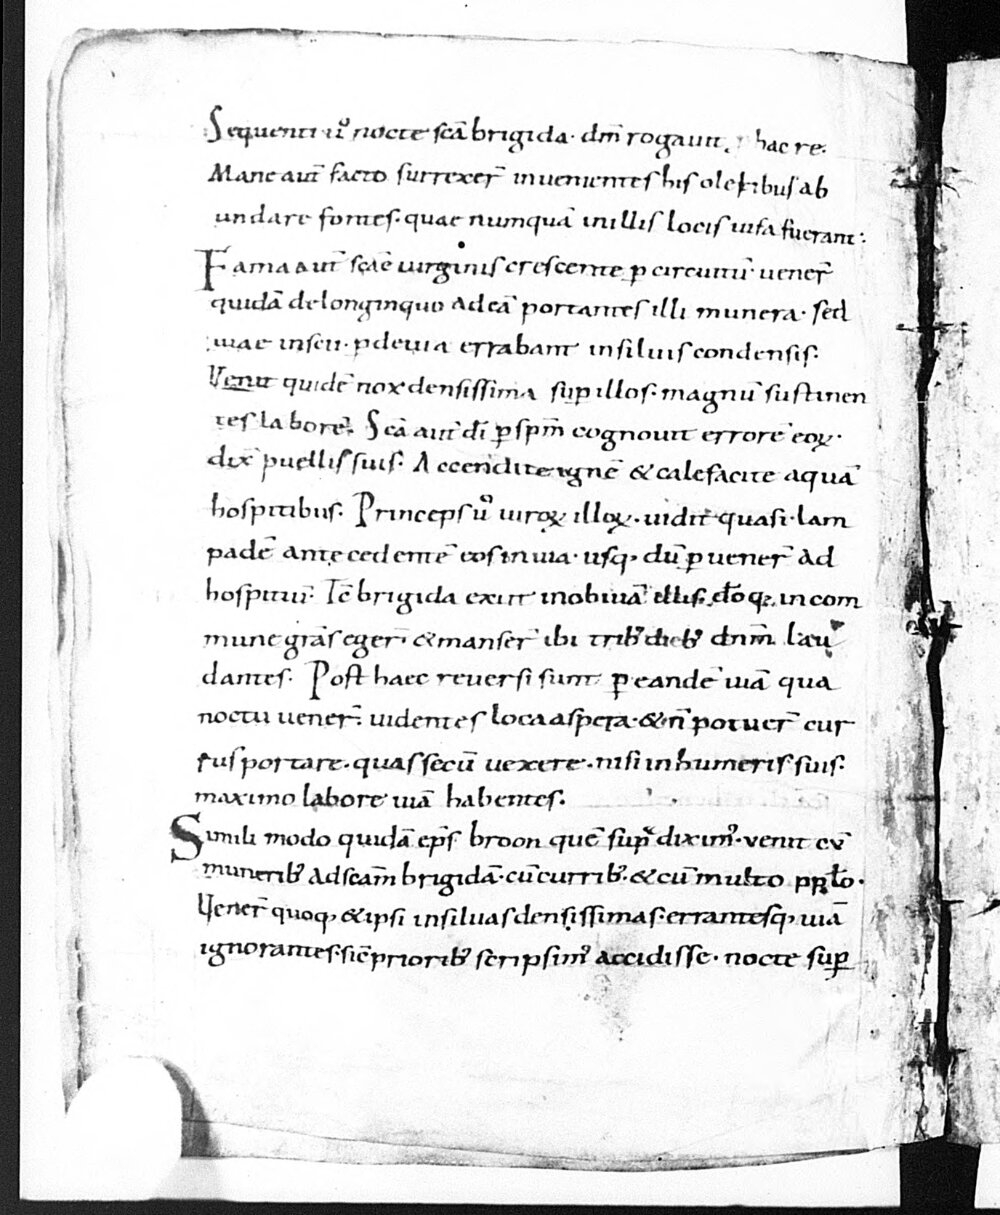 Sequenti u᷑ nocte scā brigida· dm̄ rogauit, p hac re·
Mane aut̄ facto surrexer̄ inuenientes his olei ribus ab
undare fontes· quae numquā inillis locis uisa fuerant:
Fama aut̄ scāe uirginis crescente ꝑ circuitū uener̄
quidā delonginquo adeā portantes illi munera· sed
uiae inscii· ꝑdeuia errabant insiluis condensis·
Venit quidē nox densissima suꝑ illos· magnū sustinen
tes laborē· Scā aut̄ dī ꝑ spm̄ cognouit errorē eoꝝ·
dix̄ puellis suis· Accendite ignē & calefacite aquā
hospitibus· Princeps u᷑ uiroꝝ illoꝝ· uidit quasi lam
padē antecedentē eos inuia· usq; dū ꝑuener̄ ad
hospitiū· Tc̄ brigida exiit inobuiā illis· incom
mune grās eger̄· & manser̄ ibi trib; dieb; dnm̄ lau
dantes· Post haec reuersi sunt ꝑ eandē uiā qua
noctu uener̄· uidentes loca aspera· & n̄ potuer̄ cur
rus portare· quas secū uexere· nisi in humeris suis·
maximo labore uiā habentes·
Simili modo quidā ep̄s broon quē suꝑ dixim᷒· venit cū
munerib; ad scām brigidā· cū currib;· & cū multo pp̄lo·
Vener̄ quoq; & ipsi insiluas densissimas· errantesq; uiā
ignorantes· sic̄ priorib; scripsim᷒ accidisse· nocte suꝑ